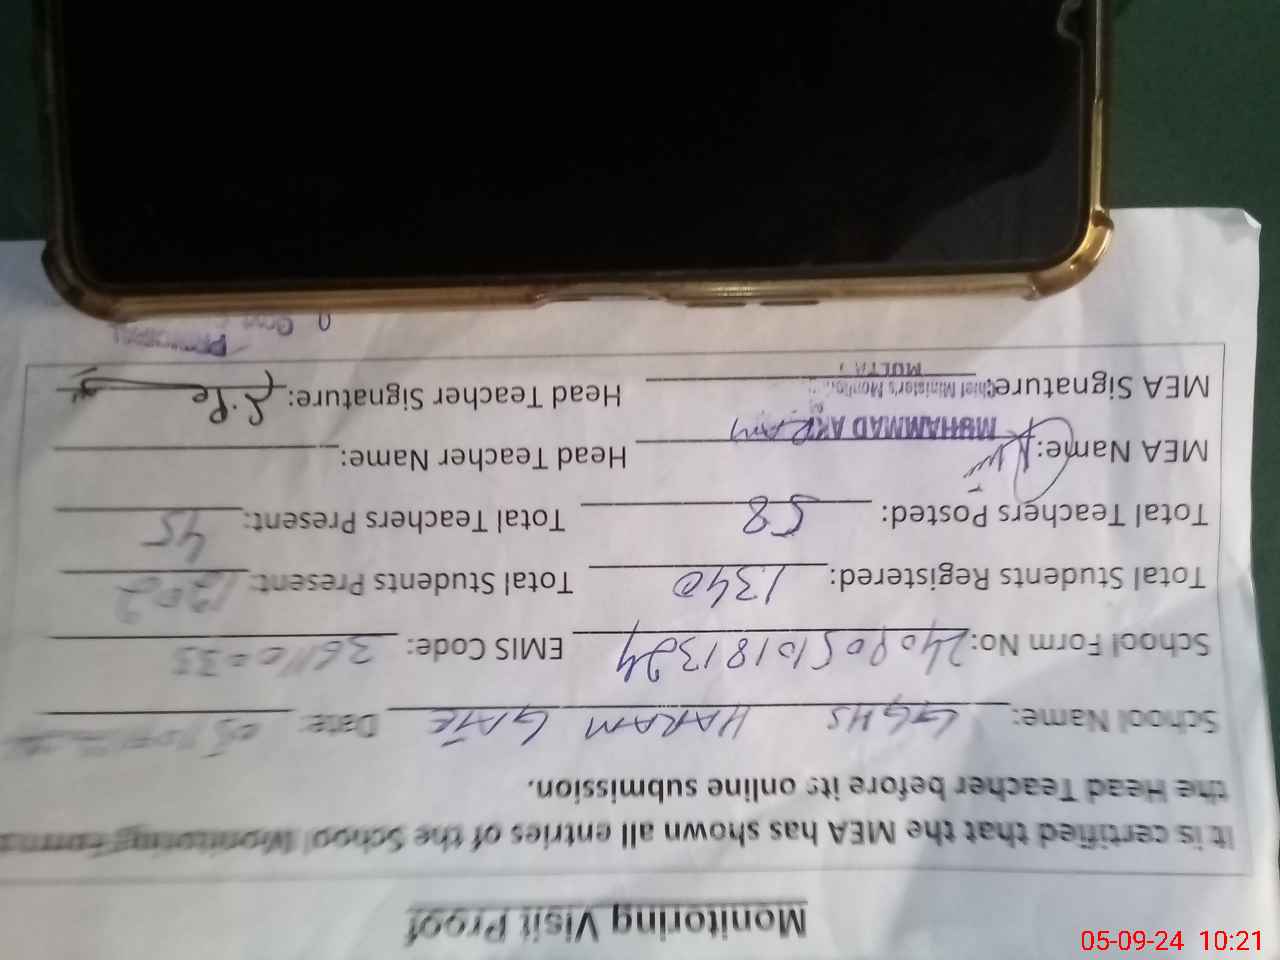 Monitoring Visit Proof
It is certified that the MEA has shown all entries of the School Monitoring Forms
the Head Teacher before its online submission.
School Name: GGHS HARAM GATE Date:
School Form No: 24090510181324 EMIS Code:
Total Students Registered: 1340 Total Students Present: 1202
Total Teachers Posted: 58 Total Teachers Present: 45
MEA Name: MUHAMMAD AKRAM Head Teacher Name:
MEA Signature: Chief Minister's Monito Head Teacher Signature:
05-09-24 10:21